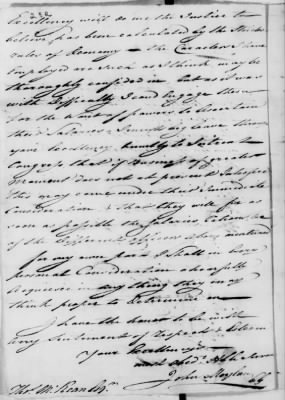 Excellency will do me the Justice to
believe, has been calculated by the Strictest
rules of Economy — the Caracters I have
employed are such as I think may be
thoroughly confided in but as it was
with difficulty I could Engage them
for the want of powers to Ascertain
their Salaries I must beg leave thro
your Excellency humbly to Sollicit
Congress that if business of greater
moment does not at present Interpose
this may come under their Immediate
Consideration & that they will fix as
soon as possible the Salaries to be
of the different officers
for my own part I shall in
personal Consideration chearfully
acquiesce in any thing they may
think proper to Determine on
I have the honor to be with
every Sentiments of Respect & Esteem
Your Excellency's
most Obed.
John Moylan
Tho.s McKean Esq.r